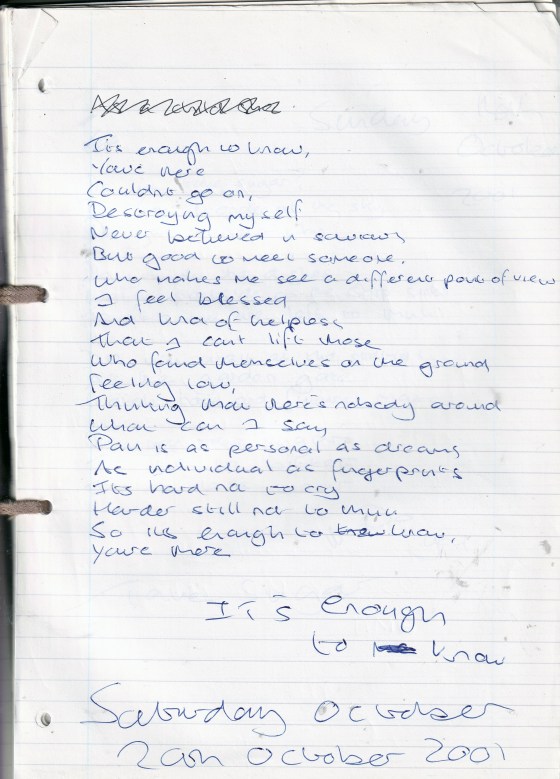 Its enough to know,
You're here
Couldnt go on,
Destroying myself
Never believed in saviours
But good to meet someone.
Who makes me see a different point of view
I feel blessed
And kind of helpless
That I cant lift those
Who find themselves on the ground
Feeling low,
Thinking that there's nobody around
What can I say
Pain is as personal as dreams
As individual as fingerprints
Its hard not to cry
Harder still not to think
So its enough to know,
You're there
IT's enough
to know
Saturday October
20th October 2001